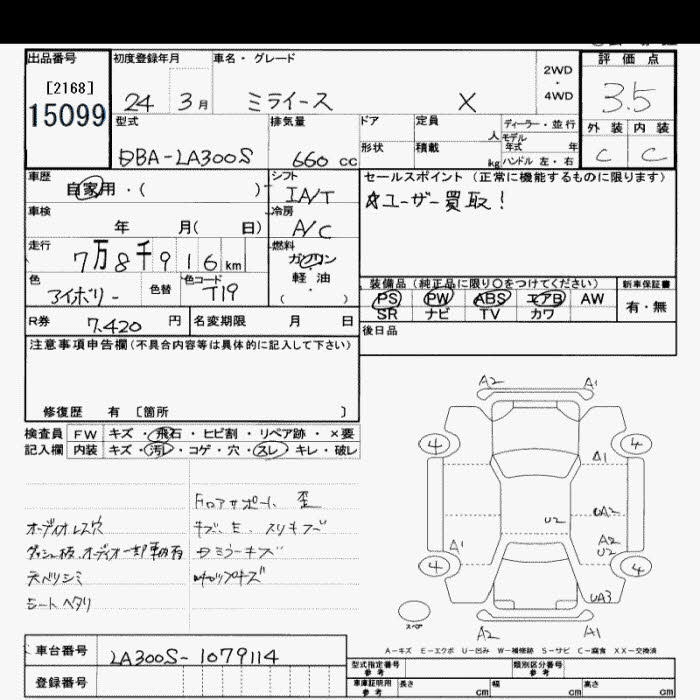 出品番号
[2168]
15099
初度登録年月
24 3月
車名・グレード
ミライース X
2WD
・
4WD
評価点
3.5
外装 内装
C C
型式
DBA-LA300S
排気量
660 cc
ドア
形状
定員 人
積載 kg
ディーラー・並行
モデル
年式 年
ハンドル 左・右
車歴
自家用・( )
シフト
IA/T
セールスポイント (正常に機能するものに限ります)
☆ユーザー買取!
車検
年 月( 日)
冷房
A/C
走行
7万8千916km
燃料
ガソリン
軽油
(・)
色
アイボリー
色替
色コード
T19
装備品 (純正品に限り○をつけてください)
PS PW ABS エアB AW
SR ナビ TV カワ
新車保証書
有・無
R券 7.420 円
名変期限 月 日
後日品
注意事項申告欄(不具合内容等は具体的に記入して下さい)
修復歴 有 〔箇所 〕
検査員 FW キズ・飛石・ヒビ割・リペア跡・×要
記入欄 内装 キズ・汚レ・コゲ・穴・スレ・キレ・破レ
フロアサポート 歪
オーディオレス穴
キズ、E、スリキズ
天ベリシミ
シートヘタリ
A2 A1
4 4
A1
U2 UA2
A2
U2
A1
4 4
UA3
スペア
A2 A1
A-キズ E-エクボ U-凹み W-補修跡 S-サビ C-腐食 XX-交換済
車台番号 LA300S-1079114
登録番号
型式指定番号
参考
類別区分番号
参考
車庫証明用
参考
長さ cm
幅 cm
高さ cm